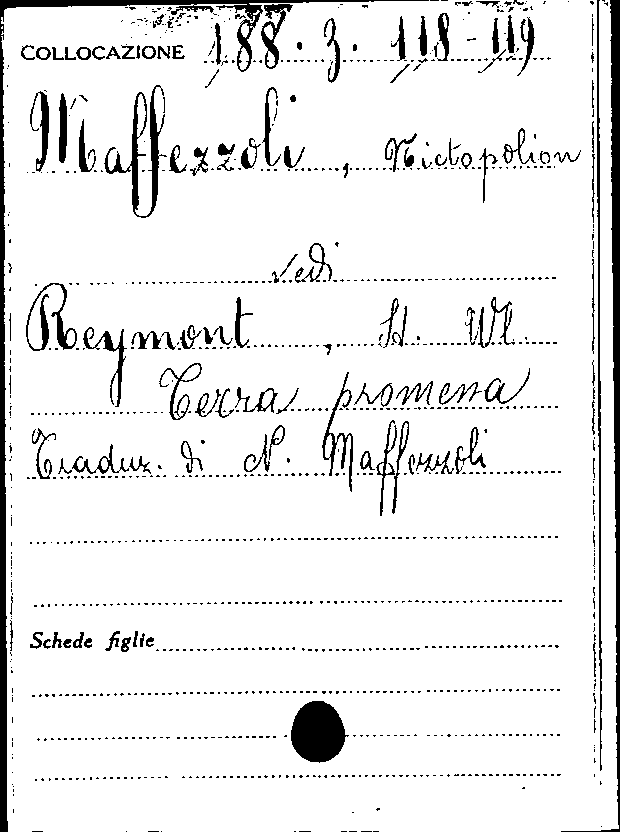 COLLOCAZIONE 188.3.118-119
Maffezzoli, Nictopolion
vedi
Reymont, St. Wl.
Terra promessa
Traduz. di N. Maffezzoli
Schede figlie